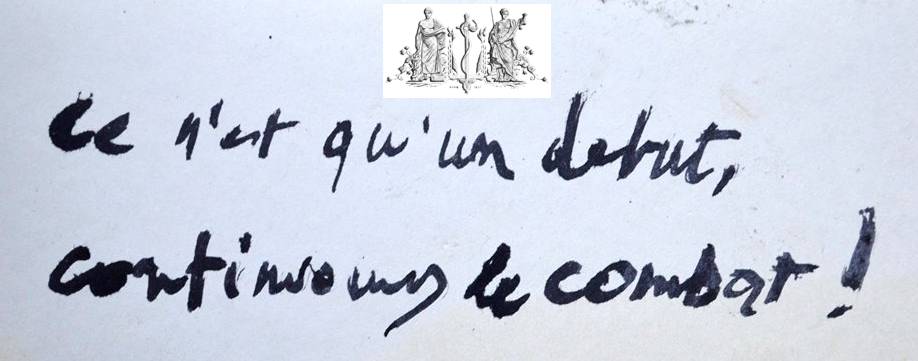 Ce n'est qu'un debut,
continuons le combat !